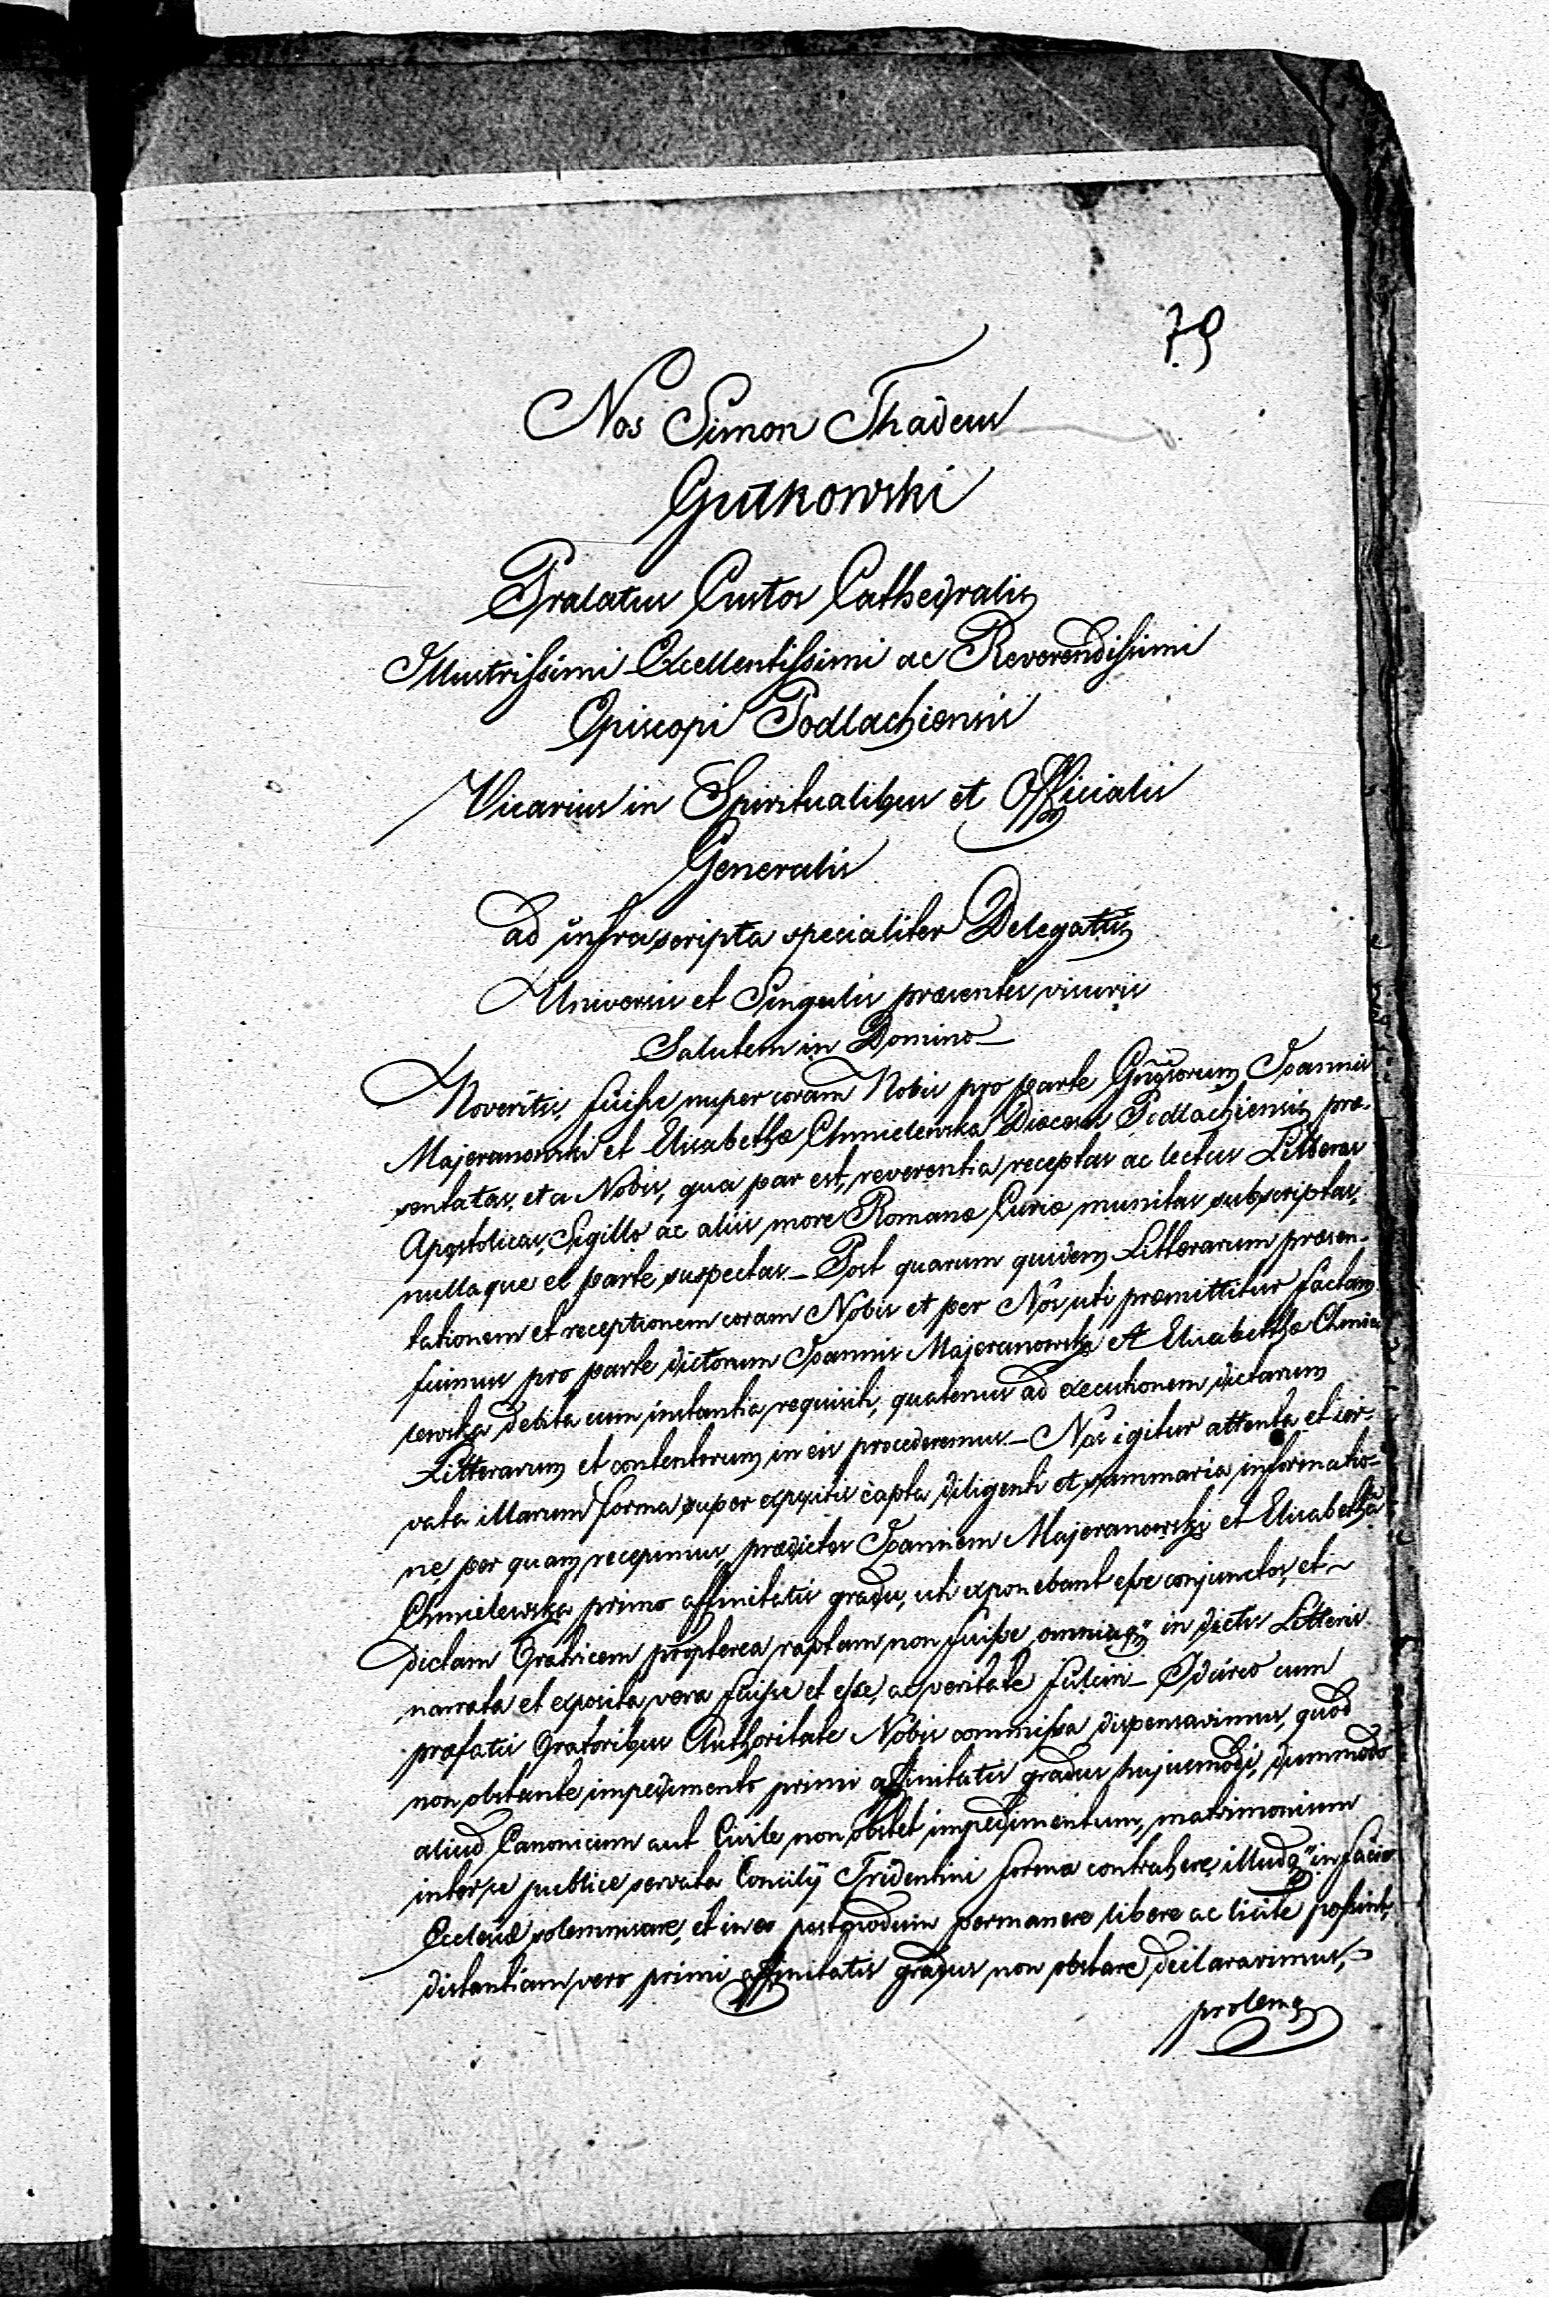 79
Nos Simon Thadeus
Gutkowski
Prælatus Custos Cathedralis
Illustrissimi Excellentissimi ac Reverendissimi
Episcopi Podlachiensis
Vicarius in Spiritualibus et Officialis
Generalis
ad infrascripta specialiter Delegatus
Universis et Singulis præsentes visuris
Salutem in Domino
Noveritis, fuisse nuper coram Nobis pro parte Joannis
Majeranowski et Elisabethæ Chmielewska Diœcesis Podlachiensis præ-
sentatas, et a Nobis, qua par est, reverentia receptas ac lectas Litteras
Apostolicas, Sigillo ac aliis more Romanæ Curiæ munitas subscriptas,
nullaque ex parte suspectas – Post quarum quidem Litterarum præsen-
tationem et receptionem coram Nobis et per Nos uti præmittitur factam
fuimus pro parte dictorum Joannis Majeranowski et Elisabethæ Chmie
lewska debita cum instantia requisiti, quatenus ad executionem dictarum
Litterarum et contentorum in eis procederemus – Nos igitur attenta et ser-
vata illarum forma super expositis capta diligenti et summaria informatio-
ne, per quam recepimus, prædictos Joannem Majeranowski et Elisabetha
Chmielewska primo affinitatis gradu, uti exponebant esse conjunctos, et
dictam Oratricem propterea raptam non fuisse, omniaq in dictis Litteris
narrata et exposita, vera fuisse et esse, ac veritate fulciri – Idcirco cum
præfatis Oratoribus Authoritate Nobis commissa, dispensavimus, quod
non obstante impedimento primi affinitatis gradus hujusmodi, dummodo
aliud Canonicum aut Civile non obstet impedimentum, matrimonium
inter se publice servata Concilij Tridentini forma contrahere, illudq in facie
Ecclesiæ solemnisare, et in eo postmodum permanere libere ac licite possint,
distantiam vero primi affinitatis gradus non obstare declaravimus,
prolemq